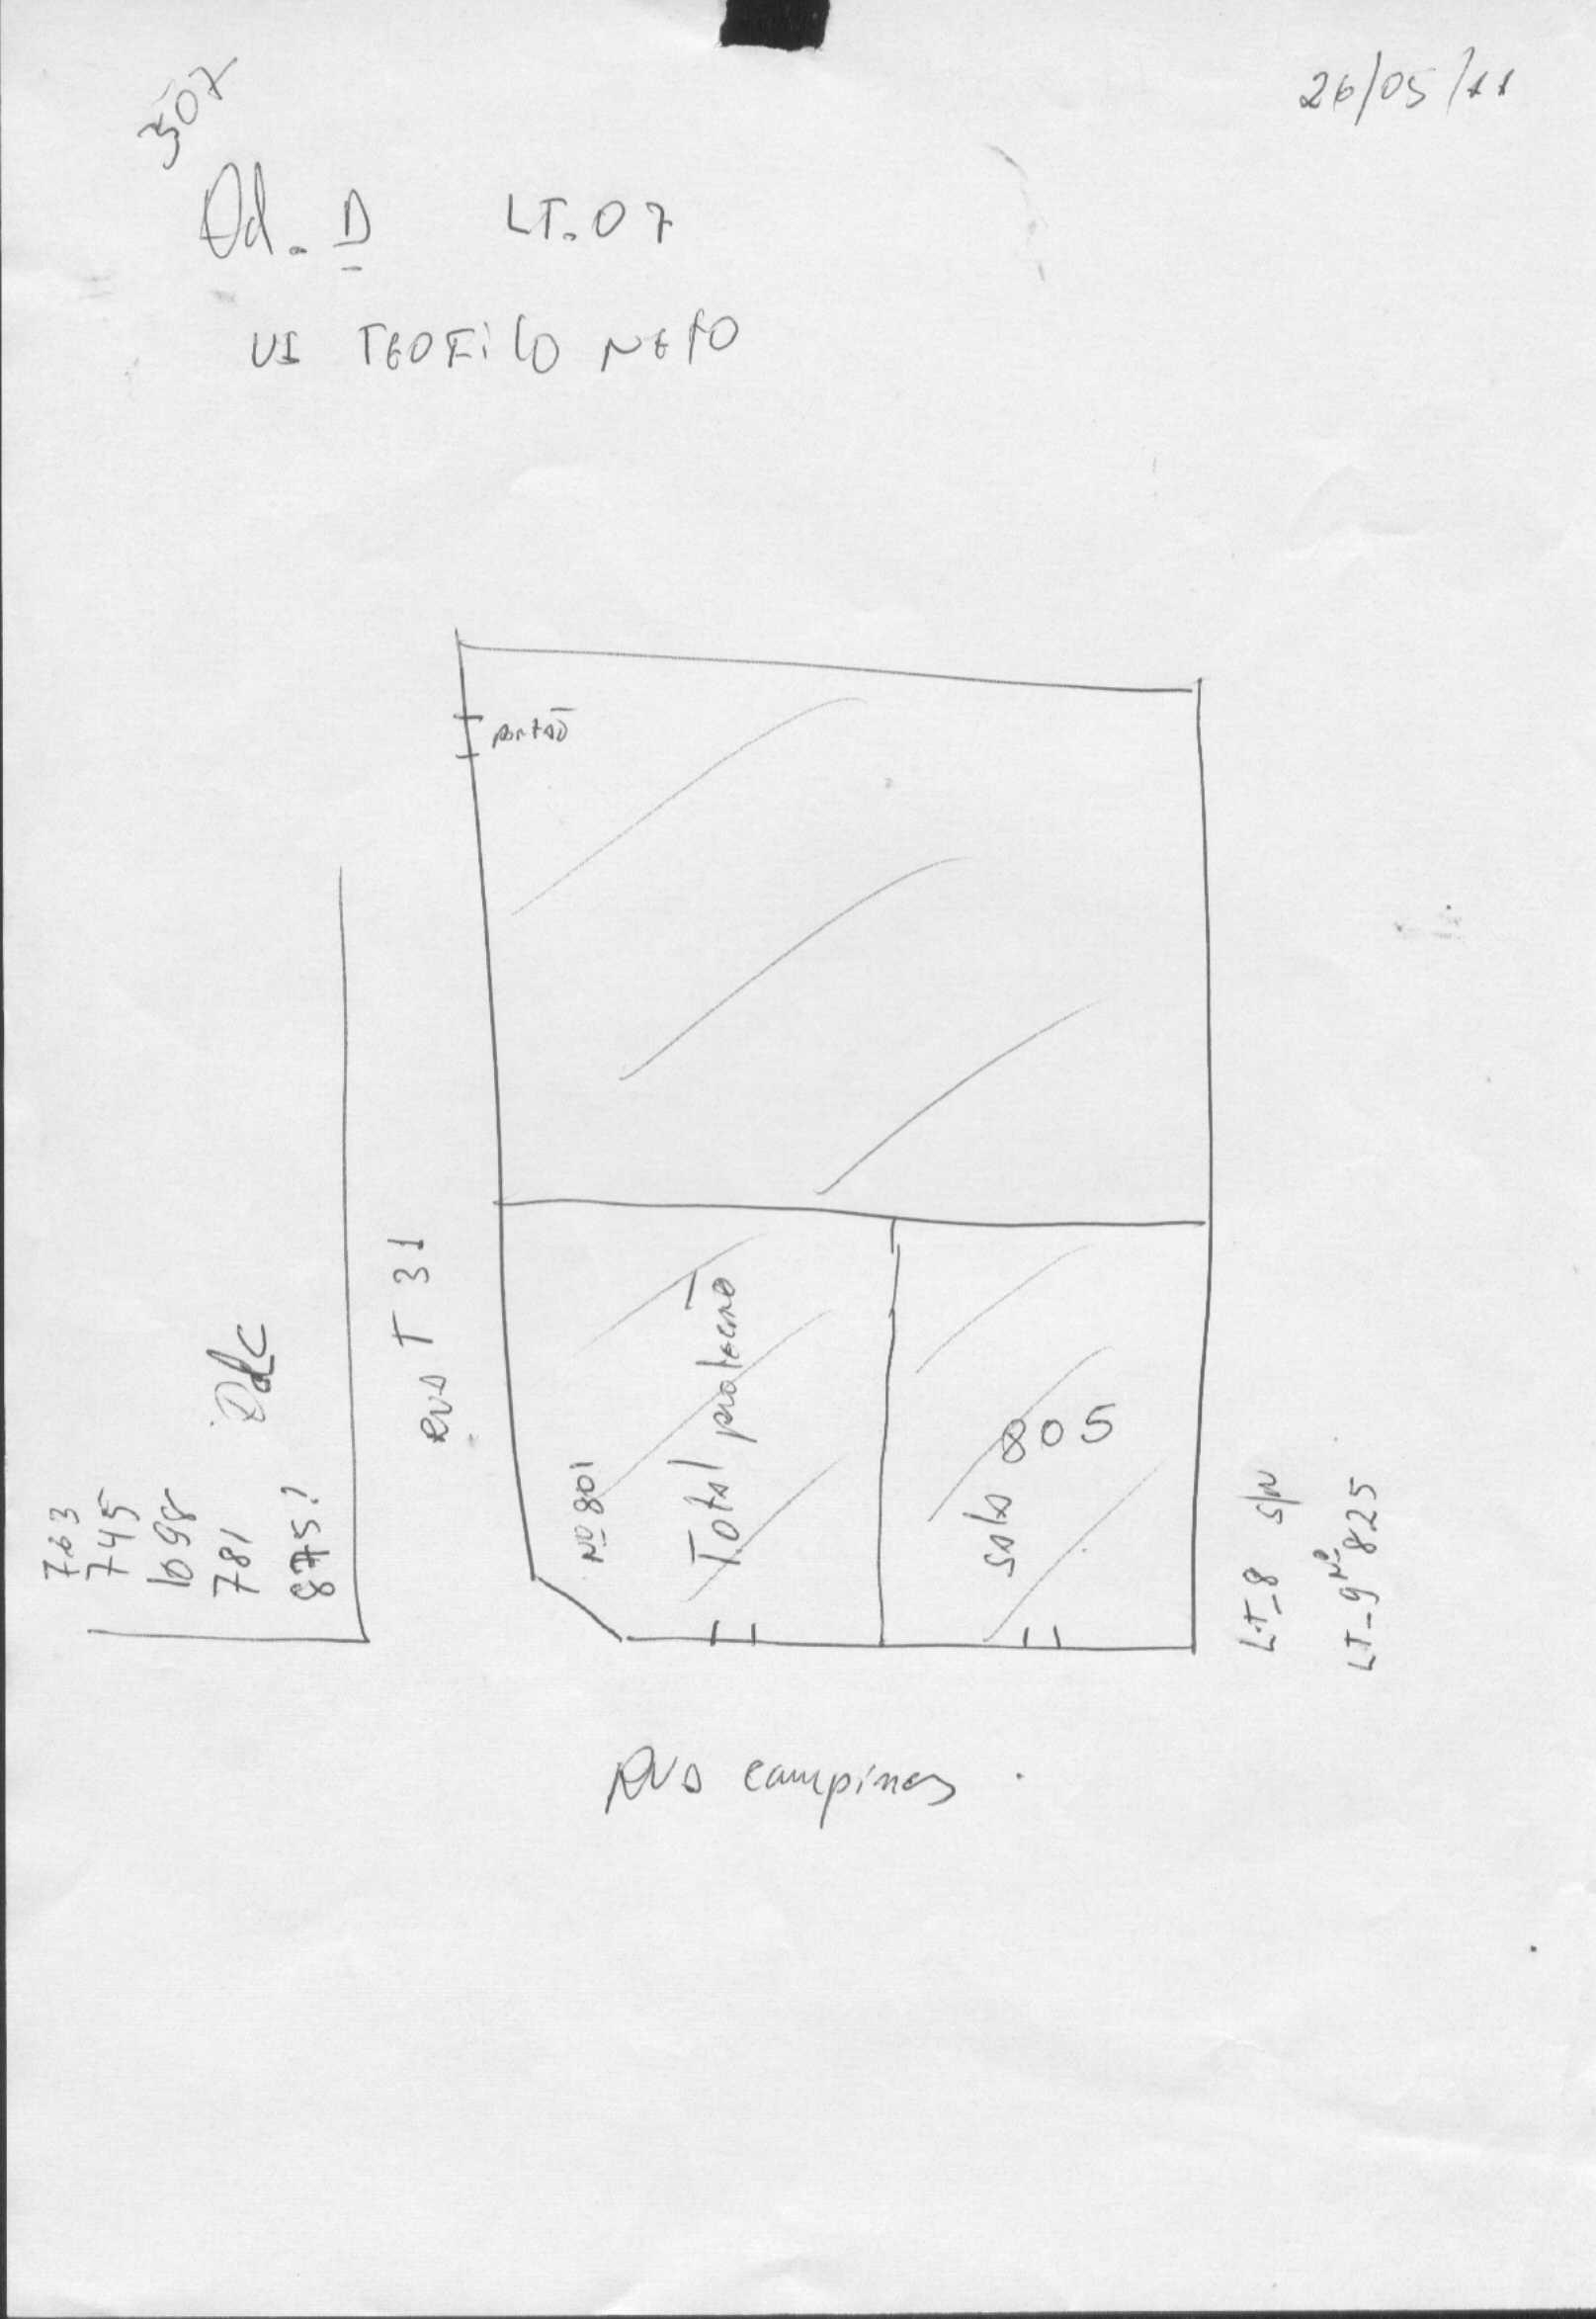 26/05/11
3507
Qd. D LT. 07
VI TEOFILO NETO
portão
RUA T 31
Qd C
763
745
1698
781
875?
Nº 801
Total
sala 805
LT-8 S/N
LT-9 Nº 825
RUA campinas